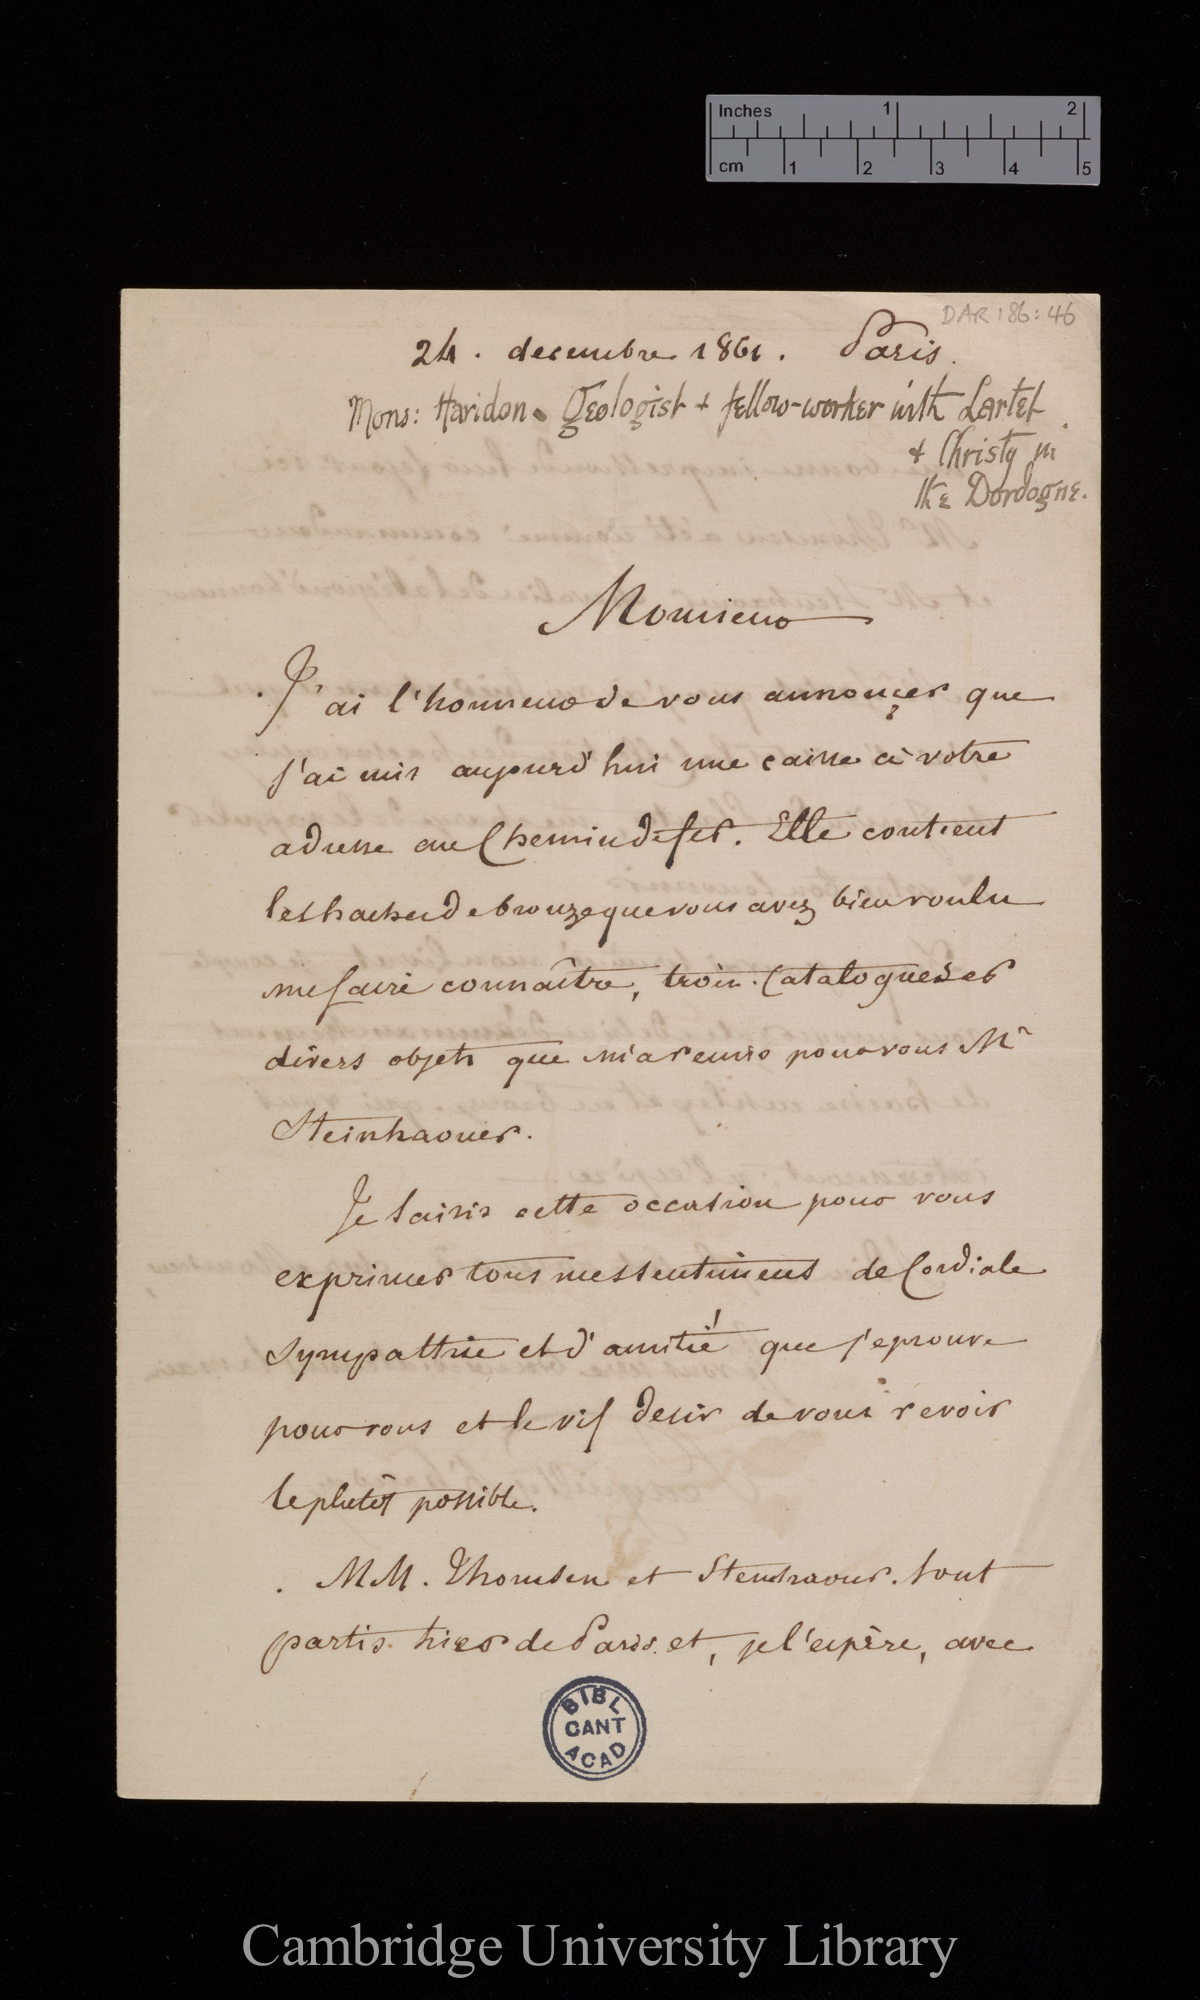 Inches 1 2
cm 1 2 3 4 5
DAR 186:46
24. decembre 1861. Paris.
Mons: Haridon. Geologist + fellow-worker with Lartet
+ Christy in
the Dordogne.
Monsieur
J'ai l'honneur de vous annonçer que
j'ai mis aujourd'hui une caisse à votre
adresse au Chemin de fer. Elle contient
les haches de bronze que vous avez bien voulu
me faire connaître, trois Catalogues et
divers objets que m'a remis pour vous Mr
Steinhaouer.
Je saisis cette occasion pour vous
exprimer tous mes sentiments de Cordiale
sympatthie et d'amitié que j'eprouve
pour vous et le vif desir de vous revoir
le plutôt possible.
MM. Thomsen et Stenhaouer. sont
partis hier de Paris. et, je l'espère, avec
BIBL
CANT
ACAD
Cambridge University Library